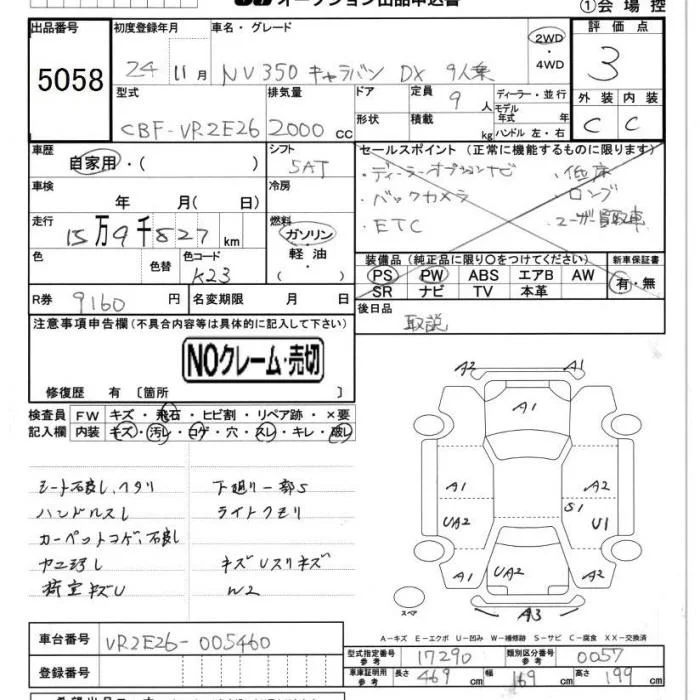 オークション出品申込書
①会場控
出品番号 5058
初度登録年月 24 11月
車名・グレード NV350 キャラバン DX 9人乗
2WD・4WD
評価点 3
外装 C 内装 C
型式 CBF-VR2E26
排気量 2000 cc
ドア形状
定員 9人
積載 kg
ディーラー・並行
モデル年式 年
ハンドル 左・右
車歴 自家用・( )
シフト 5AT
セールスポイント (正常に機能するものに限ります)
・ディーラーオプションナビ ・低床
・バックカメラ ・ロング
・ETC ・ユーザー買取車
車検 年 月 ( 日)
冷房
走行 15万9千827km
燃料 ガソリン・軽油・( )
色 色替 色コード K23
装備品 (純正品に限り○をつけてください)
PS PW ABS エアB AW
SR ナビ TV 本革
新車保証書 有・無
R券 9160 円
名変期限 月 日
後日品 取説
注意事項申告欄 (不具合内容等は具体的に記入して下さい)
NOクレーム・売切
修復歴 有 〔箇所 〕
検査員記入欄
FW キズ・飛石・ヒビ割・リペア跡・×要
内装 キズ・汚レ・コゲ・穴・スレ・キレ・破レ
シート汚良し、ヘタリ 下廻り一部S
ハンドルスレ ライトクモリ
カーペットコゲ、汚良し
ヤニ汚レ キズUスリキズ
荷室キズU W2
A2 A1
A1
A1 A2
UA2 S1 U1
A1 UA2 A2
A3
スペア
A-キズ E-エクボ U-凹み W-補修跡 S-サビ C-腐食 XX-交換済
車台番号 VR2E26-005460
登録番号
型式指定番号 参考 17290
類別区分番号 参考 0057
車庫証明用 参考 長さ 469 cm 幅 169 cm 高さ 199 cm